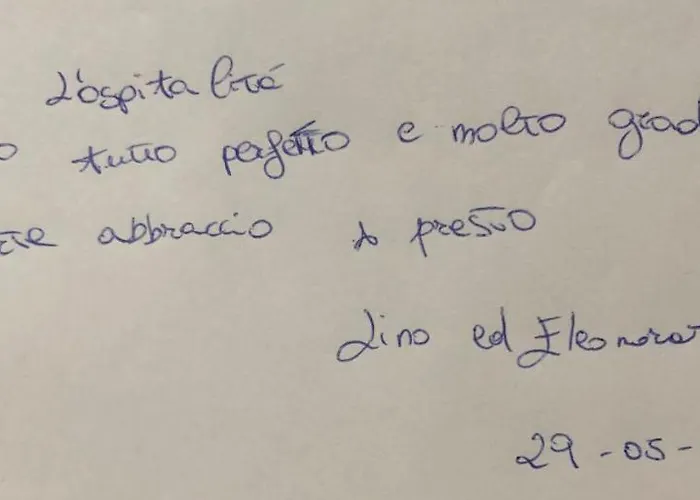 L'ospitalità
o tutto perfetto e molto grad
te abbraccio A presto
Lino ed Eleonora
29-05-